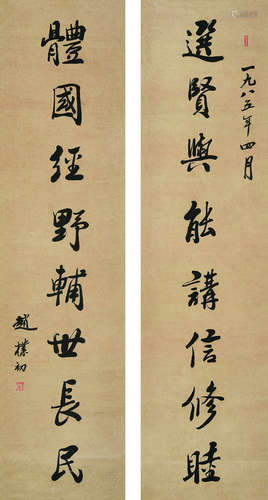 一九八五年四月
選賢與能講信修睦
體國經野輔世長民
趙樸初